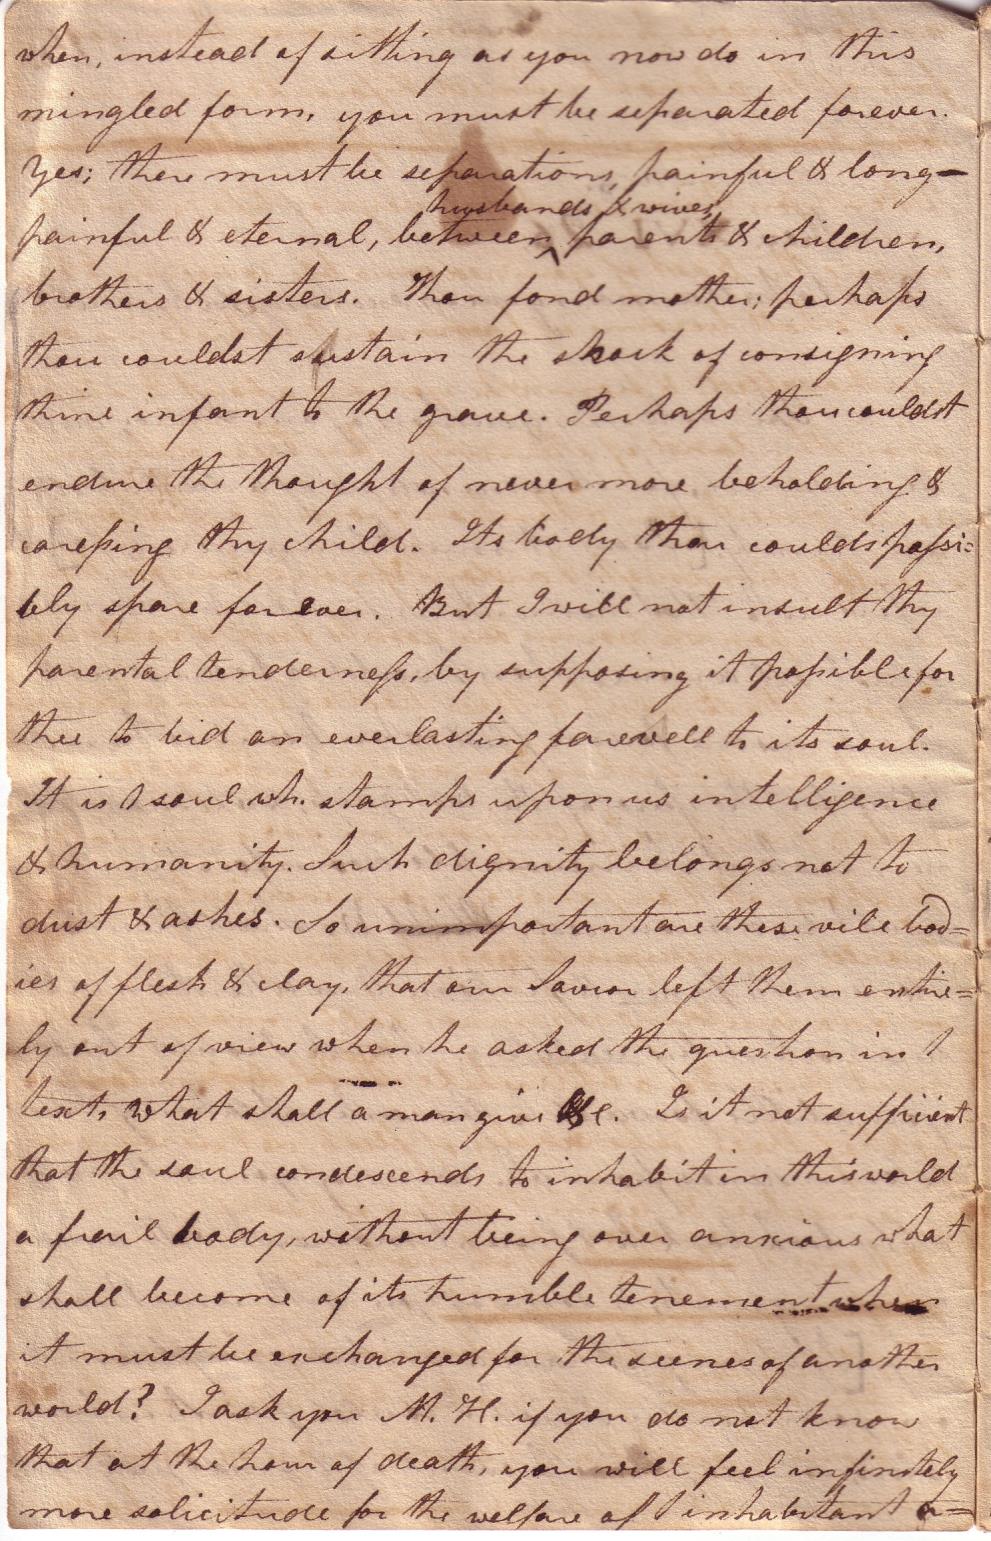 when, instead of sitting as you now do in this
mingled form, you must be separated forever.
Yes; there must be separations, painful & long—
husbands & wives,
painful & eternal, between ^ parents & children,
brothers & sisters. Thou fond mother; perhaps
thou couldst sustain the shock of consigning
thine infant to the grave. Perhaps thou couldst
endure the thought of never more beholding &
careſsing thy child. Its body thou couldst poſsi=
bly spare forever. But I will not insult thy
parental tenderneſs, by supposing it poſsible for
thee to bid an everlasting farewell to its soul.
It is / soul wh. stamps upon us intelligence
& humanity. Such dignity belongs not to
dust & ashes. So unimportant are these vile bod=
ies of flesh & clay, that our Savior left them entire=
ly out of view when he asked the question in /
text, what shall a man give &c. Is it not sufficient
that the soul condescends to inhabit in this world
a frail body, without being over anxious what
shall become of its humble tenement when
it must be exchanged for the scenes of another
world? I ask you M. H. if you do not know
that at the hour of death, you will feel infinitely
more solicitude for the welfare of / inhabitant a=